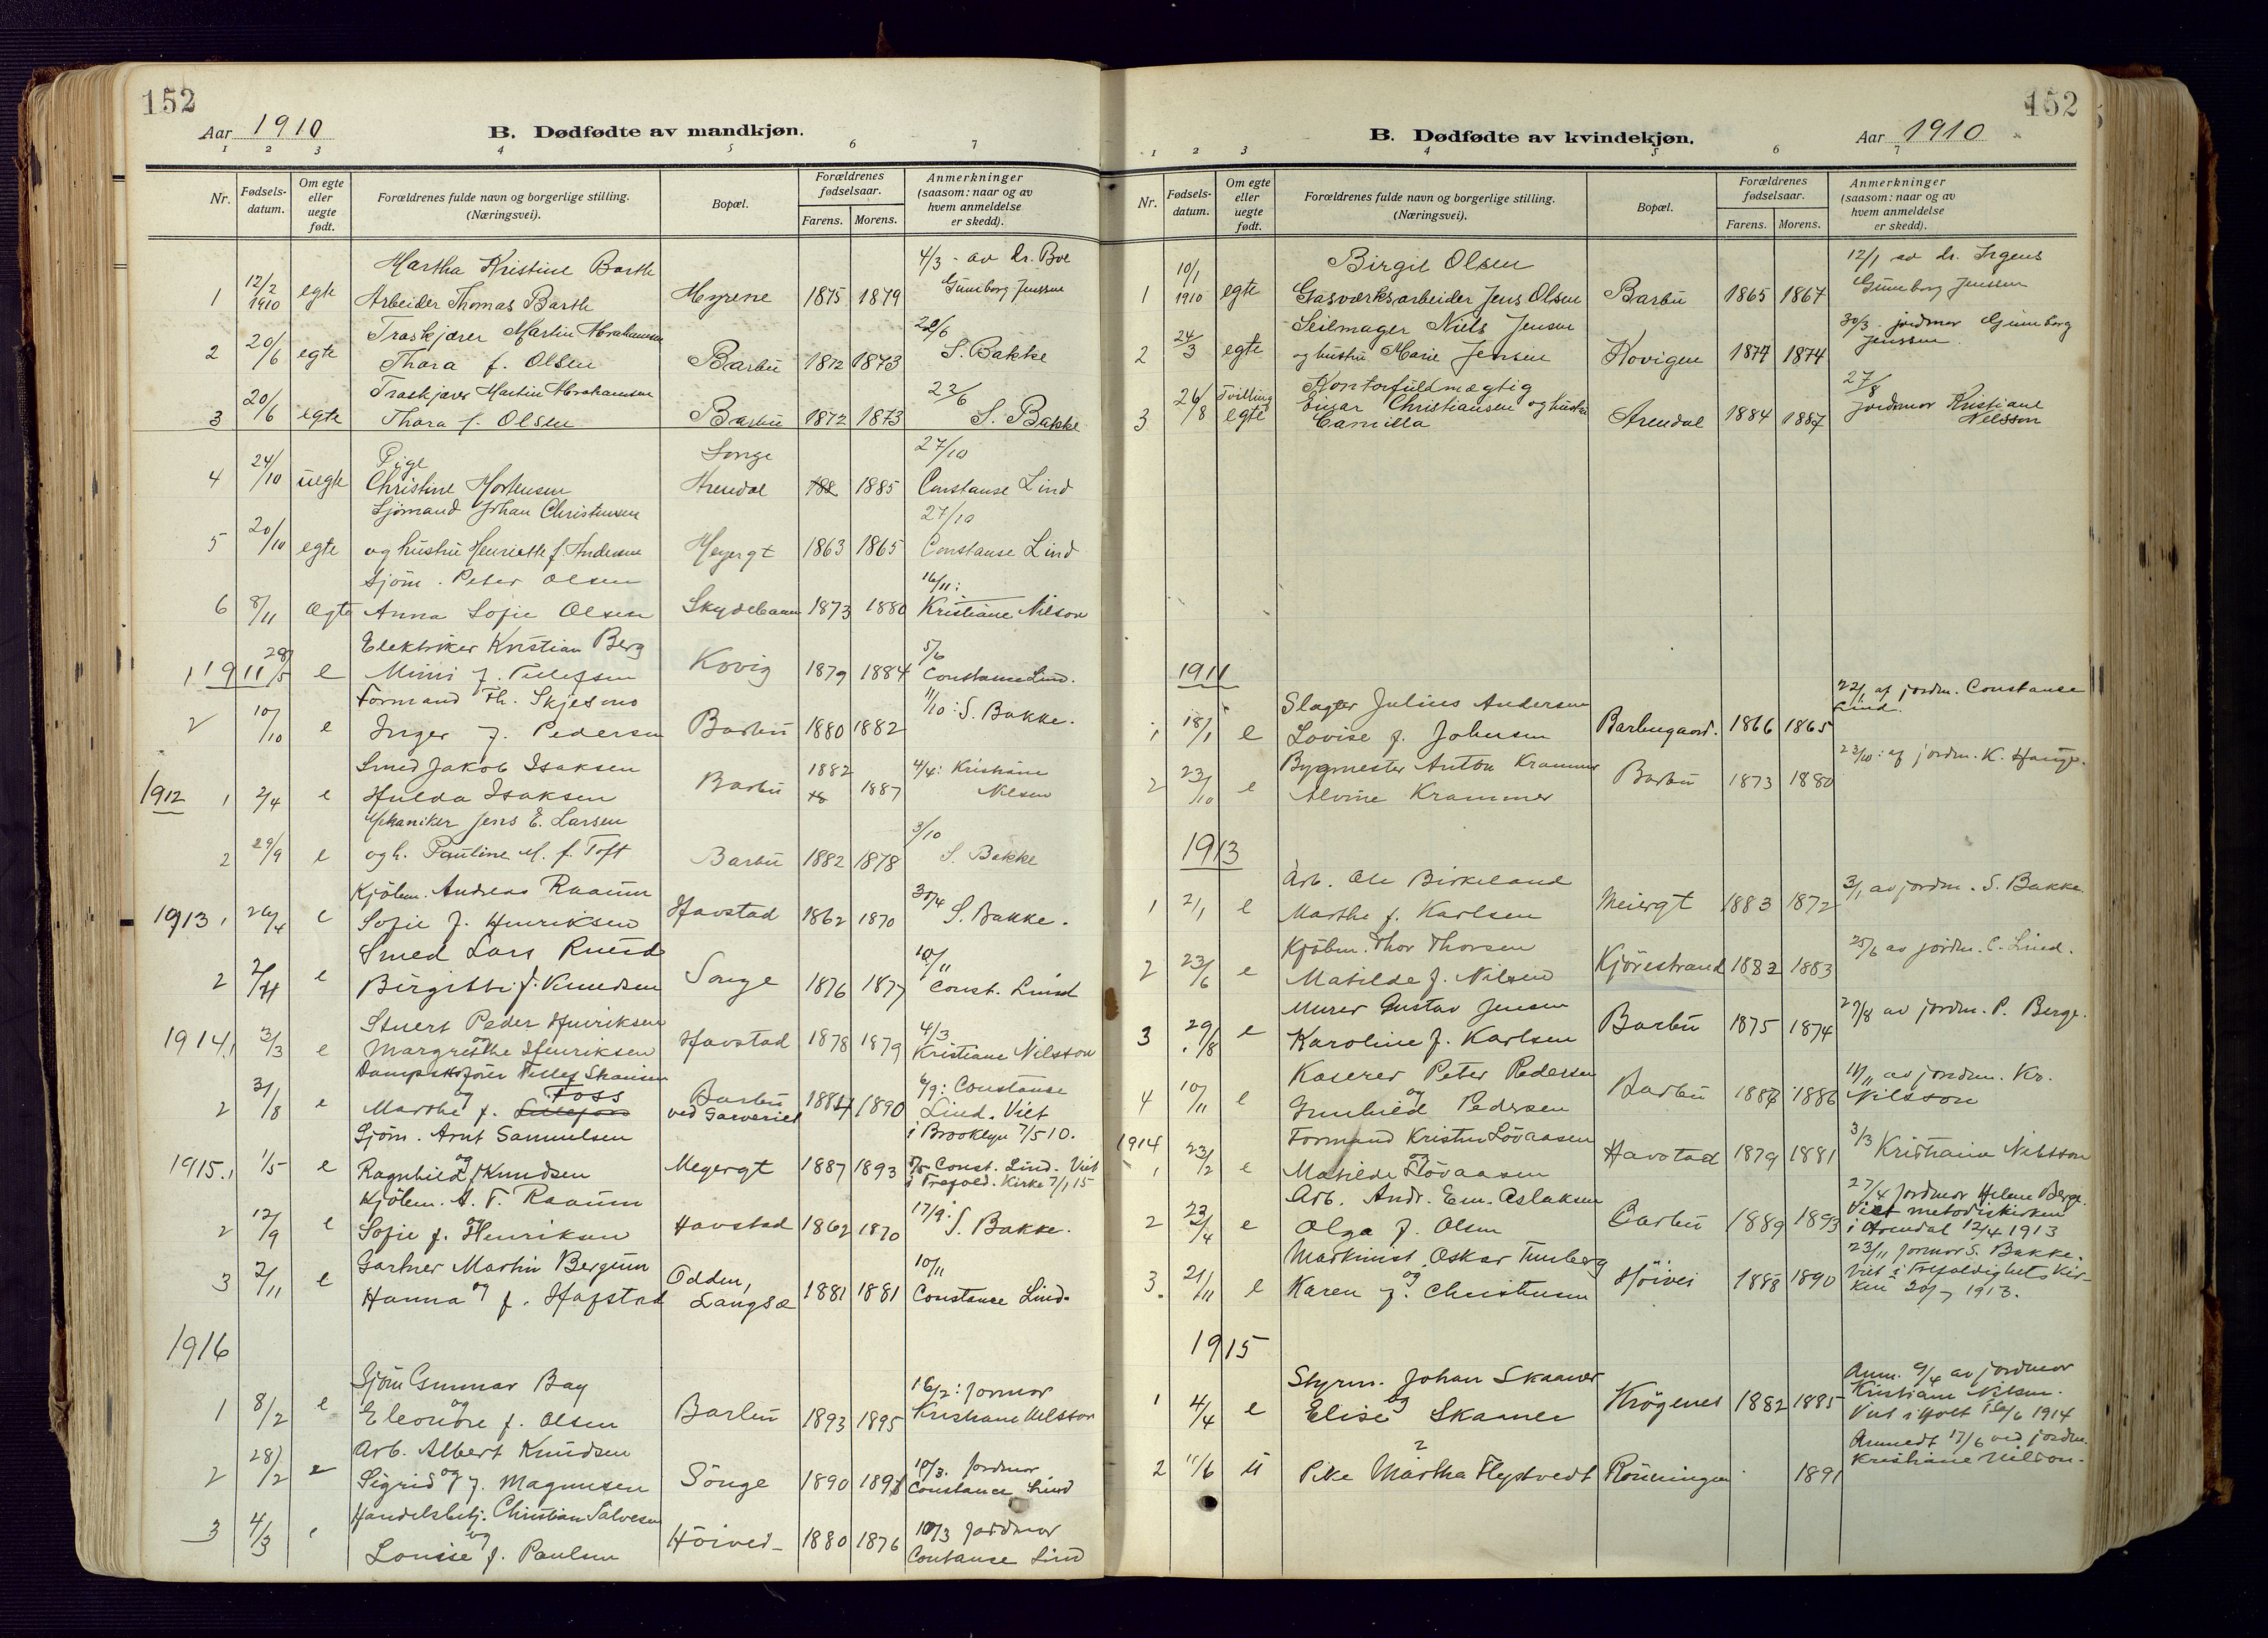 152
Aar 1910
B. Dødfødte av mandkjøn.
1 2 3 4 5 6 7
Nr. Fødsels-datum. Om egte eller uegte født. Forældrenes fulde navn og borgerlige stilling. (Næringsvei). Bopæl. Forældrenes fødselsaar. Farens. Morens. Anmerkninger (saasom: naar og av hvem anmeldelse er skedd).
Martha Kristine Barth 4/3 - av dr. Boe
1 12/2 1910 egte Arbeider Thomas Barth Myrene 1875 1879 Guneborg Jenssen
Traskjærer Martin Abrahamsen 22/6
2 20/6 egte Thora f. Olsen Barbu 1872 1873 S. Bakke
Traskjærer Martin Abrahamsen 22/6
3 20/6 egte Thora f. Olsen Barbu 1872 1873 S. Bakke
Pige Songe 27/10
4 24/10 uegte Christine Mortensen Arendal 188 1885 Constanse Lind
Sjømand Johan Christensen 27/10
5 20/10 egte og hustru Henriette f. Andersen Meyergt 1863 1865 Constanse Lind
Sjøm. Peter Olsen 16/11:
6 8/11 Ægte Anna Sofie Olsen Skydebaan 1873 1880 Kristiane Nilson
Elektriker Kristian Berg 5/6
1 1911 28/5 e Mimi f. Tellefsen Kovig 1879 1884 Constance Lind.
Formand Th. Skjesons 11/10: S. Bakke.
2 10/10 e Inger f. Pedersen Barbu 1880 1882
Smed Jakob Isaksen 1882 4/4: Kristiane
1912 1 2/4 e Hulda Isaksen Barbu 18 1887 Nilsen
Mekaniker Jens E. Larsen 3/10
2 29/9 e og h. Pauline M. f. Toft Barbu 1882 1878 S. Bakke
Kjøbm. Andreas Raaum 30/4
1913 1 26/4 e Sofie f. Henriksen Havstad 1862 1870 S. Bakke.
Smed Lars Ruud 10/11
2 2/11 e Birgitte f. Knudsen Songe 1876 1877 Const. Lind
Stuert Peder Henriksen 4/3
1914. 1 3/3 e og Margrethe Henriksen Havstad 1878 1879 Kristiane Nilsson
Dampsksfører Tellef Skansen Foss Barbu 6/9: Constanse
2 31/8 e og Marthe f. Tellefsen ved Garveriet 1884 1890 Lind. Viet
Sjøm. Arnt Samuelsen i Brooklyn 7/5 10.
1915. 1 1/5 e og Ragnhild f. Knudsen Meyergt 1887 1893 7/5 Const. Lind. Viet i Trefold. Kirke 7/1 15
Kjøbm. A. T. Raaum 17/9:
2 12/9 e og Sofie f. Henriksen Havstad 1862 1870 S. Bakke.
Gartner Martin Bergum Odden, 10/11
3 2/11 e og Hanna f. Hafstad Langsæ 1881 1881 Constance Lind.
1916
Sjøm Gunnar Bay 16/2: Jormor
1 8/2 e og Eleonore f. Olsen Barbu 1893 1895 Kristiane Nilsson
Arb. Albert Knudsen 10/3. Jordmor
2 28/2 e og Sigrid f. Magnusen Songe 1890 1891 Constance Lind
Handelsbetj. Christian Salvesen 10/3 Jordmor
3 4/3 og Louise f. Paulsen Höived 1880 1876 Contanse Lind
152
B. Dødfødte av kvindekjøn.
Aar 1910
1 2 3 4 5 6 7
Nr. Fødsels-datum. Om egte eller uegte født. Forældrenes fulde navn og borgerlige stilling. (Næringsvei). Bopæl. Forældrenes fødselsaar. Farens. Morens. Anmerkninger (saasom: naar og av hvem anmeldelse er skedd).
Birgit Olsen 12/1 av dr. Irgens
1 10/1 1910 egte Gasværksarbeider Jens Olsen Barbu 1865 1867 Guneborg Jenssen
Seilmager Niels Jensen 30/3 jordmor Guneborg
2 24/3 egte og hustru Marie Jensen Kovigen 1877 1874 Jenssen.
Kontorfuldmægtig 27/8
3 26/8 Tvilling egte Einar Christiansen og hustru Camilla Arendal 1884 1887 Jordmor Kristiane Nilsson
1911
Slagter Julius Andersen 22/1 af jordm. Constance
1 18/1 e Lovise f. Johnsen Barbugaard. 1866 1865 Lind.
Bygmester Anton Krammer 23/10: af jordm. K. Hauge.
2 23/10 e Alvine Krammer Barbu 1873 1880
1913
Arb. Ole Birkeland
1 2/1 e Marthe f. Karlsen Meiergt 1883 1872 3/1 av jordm. S. Bakke.
Kjöbm. Thor Thorsen
2 23/6 e Matilde f. Nilsen Kjörestrand 1882 1883 25/6 av jordm. C. Lind.
Murer Gustav Jensen
3 29/8 e Karoline f. Karlsen Barbu 1875 1874 29/8 av jordm. P. Berge.
Kaserer Peter Pedersen 11/11 av jordm. Kr.
4 10/11 e og Gunhild Pedersen Barbu 1886 1886 Nilsson
1914 Formand Kristen Lövaasen
1 23/2 e og Matilde Lövaasen Havstad 1879 1881 3/3 Kristiane Nilsson
Arb. Andr. Em. Aslaksen 27/4 Jordmor Helene Berge.
2 23/4 e Olga f. Olsen Barbu 1889 1893 Viet metodistkirken i Arendal 12/4 1913
Maskinist Oskar Tunberg 23/11 Jormor S. Bakke.
3. 21/11 e og Karen f. Christensen Höivei 1888 1890 Viet i Trefoldighets Kirken 20/7 1913.
1915
Styrm. Johan Skaaner Anm. 9/4 av jordmor
1 4/4 e og Elise Skamer Krögenes 1882 1885 Kristiane Nilsen. Viet i Holt 16/6 1914
2 11/6 u Pike Martha Flystvedt Rönningen 1891 Anmeldt 17/6 ved jordm. Kristiane Nilson.